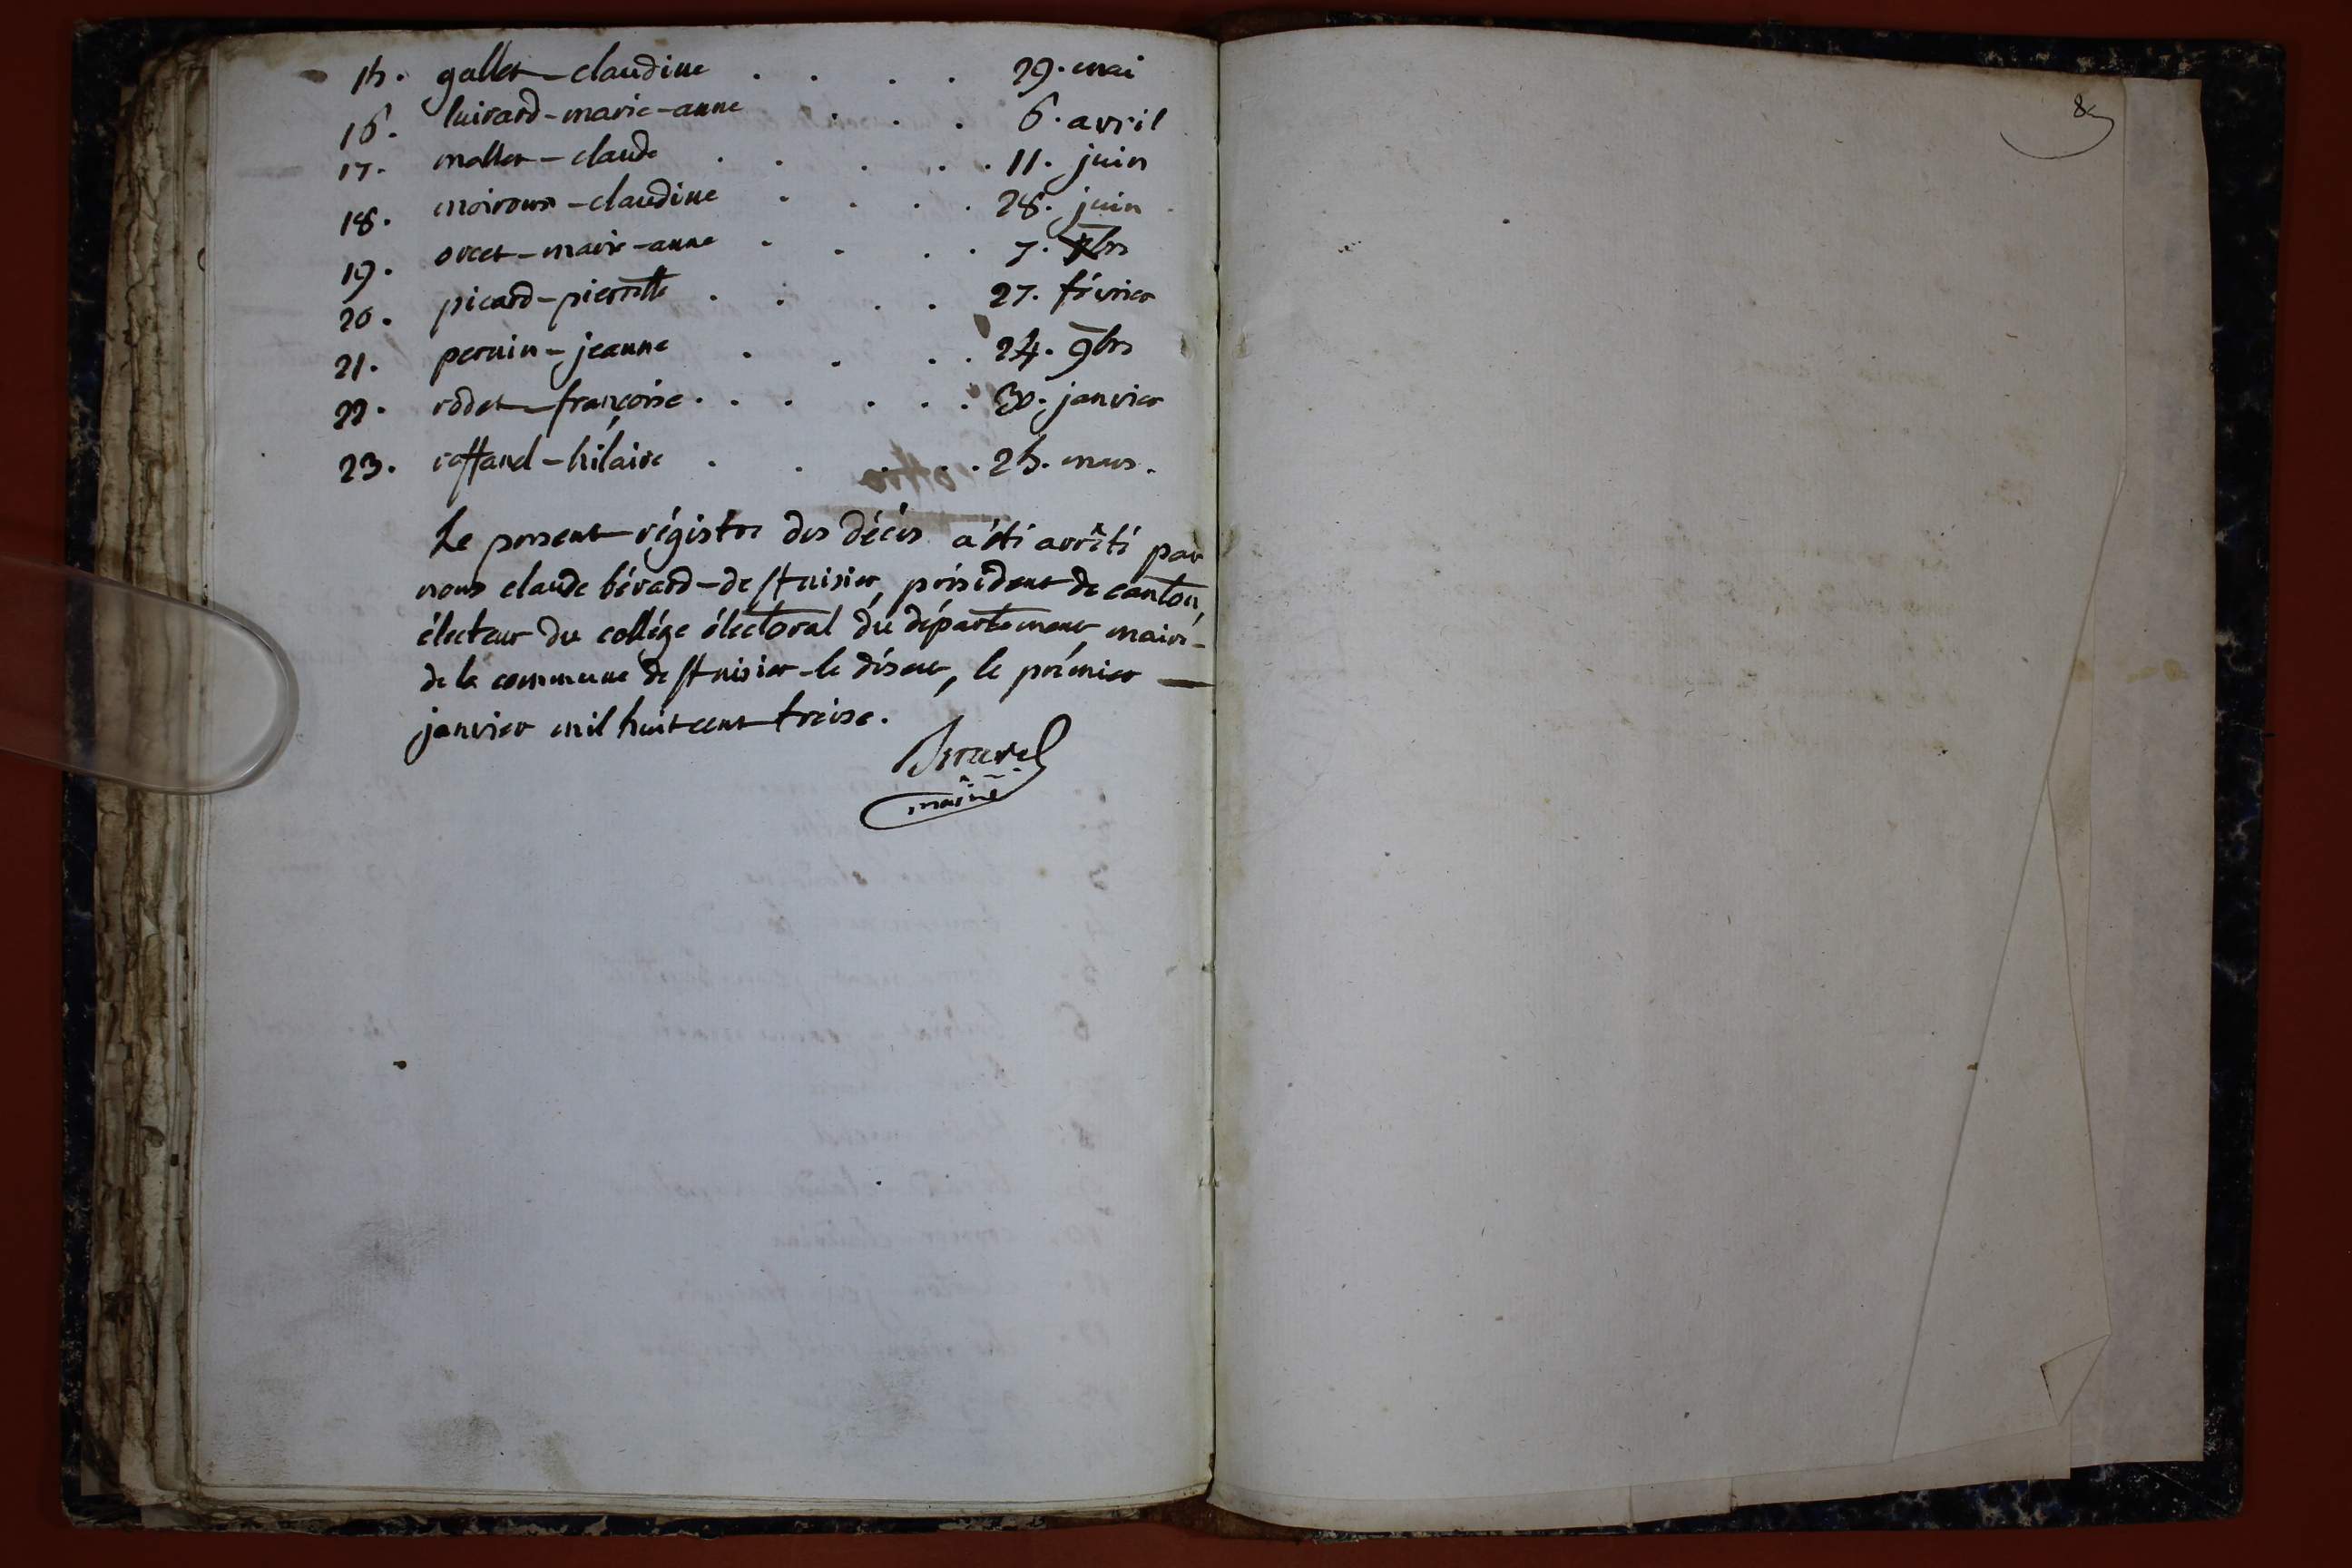 15. gallet-claudine . . . . 29. mai
16. luirard-marie-anne . . . 6. avril
17. mallet-claude . . . . . 11. juin
18. moiroux-claudine . . . . 28. juin
19. orcet-marie-anne . . . . 7. Xbre
20. picard-pierrette . . . . 27. février
21. pernin-jeanne . . . . 24. 9bre
22. rodet-françoise . . . . . . 30. janvier
23. roffavel-hilaire . . . . . 25. mars.
Le present régistre des décès a été arrêté par
nous claude bérard-de st nisier, président de canton,
électeur du collége électoral du département, maire
de la commune de st nisier-le désert, le prémier
janvier mil huit cent treize.
maire
8